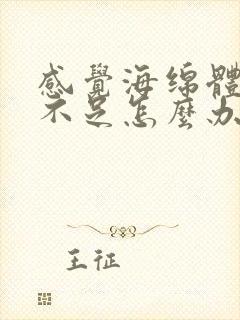 感覺海綿體
不足怎麼办
王征